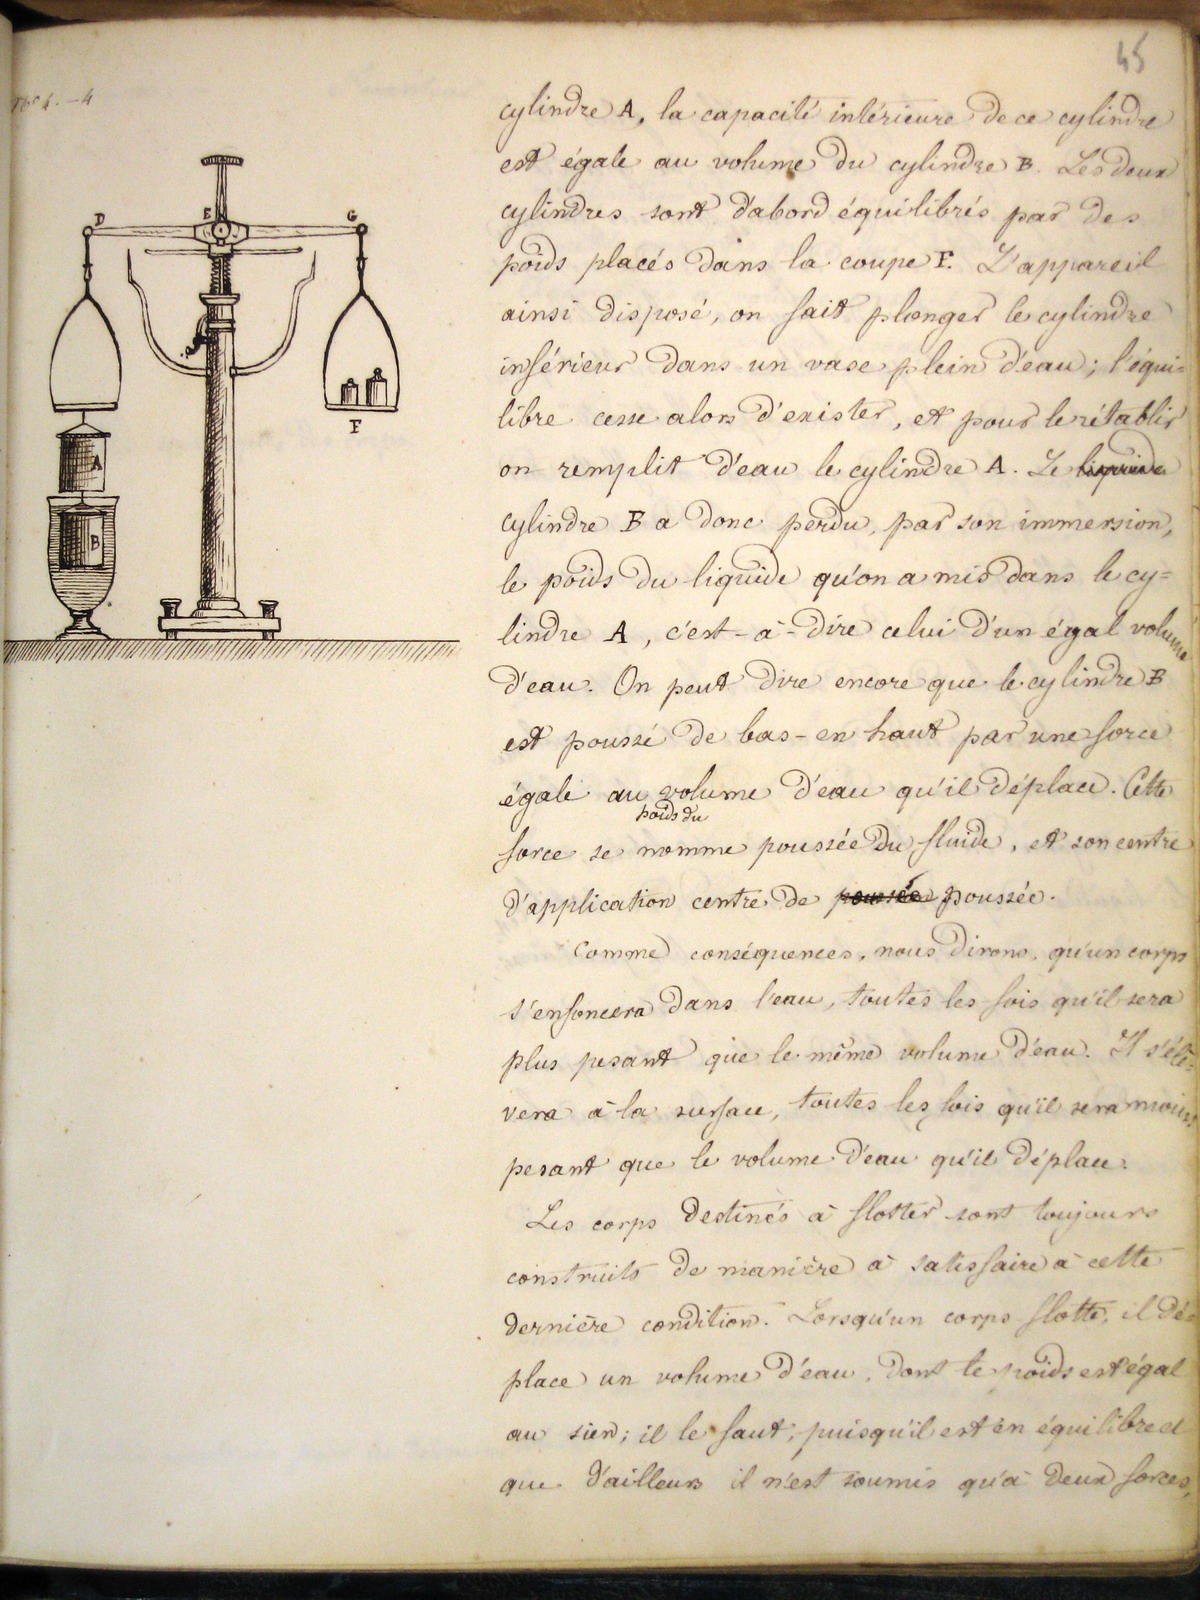 45
D E G
F
A
B
cylindre A, la capacité intérieure de ce cylindre
est égale au volume du cylindre B. Les deux
cylindres sont d'abord équilibrés par des
poids placés dans la coupe F. L'appareil
ainsi disposé, on fait plonger le cylindre
inférieur dans un vase plein d'eau; l'équi=
libre cesse alors d'exister, et pour le rétablir
on remplit d'eau le cylindre A. Le liquide
cylindre B a donc perdu, par son immersion,
le poids du liquide qu'on a mis dans le cy=
lindre A, c'est-à-dire celui d'un égal volume
d'eau. On peut dire encore que le cylindre B
est poussé de bas-en haut par une force
égale au volume d'eau qu'il déplace. Cette
poids du
force se nomme poussée du fluide, et son centre
d'application centre de poussée poussée.
Comme conséquences, nous dirons, qu'un corps
s'enfoncera dans l'eau, toutes les fois qu'il sera
plus pesant que le même volume d'eau. Il s'élè=
vera à la surface, toutes les fois qu'il sera moins
pesant que le volume d'eau qu'il déplace.
Les corps destinés à flotter sont toujours
construits de manière à satisfaire à cette
dernière condition. Lorsqu'un corps flotte, il dé=
place un volume d'eau, dont le poids est égal
au sien; il le faut, puisqu'il est en équilibre et
que d'ailleurs il n'est soumis qu'à deux forces,